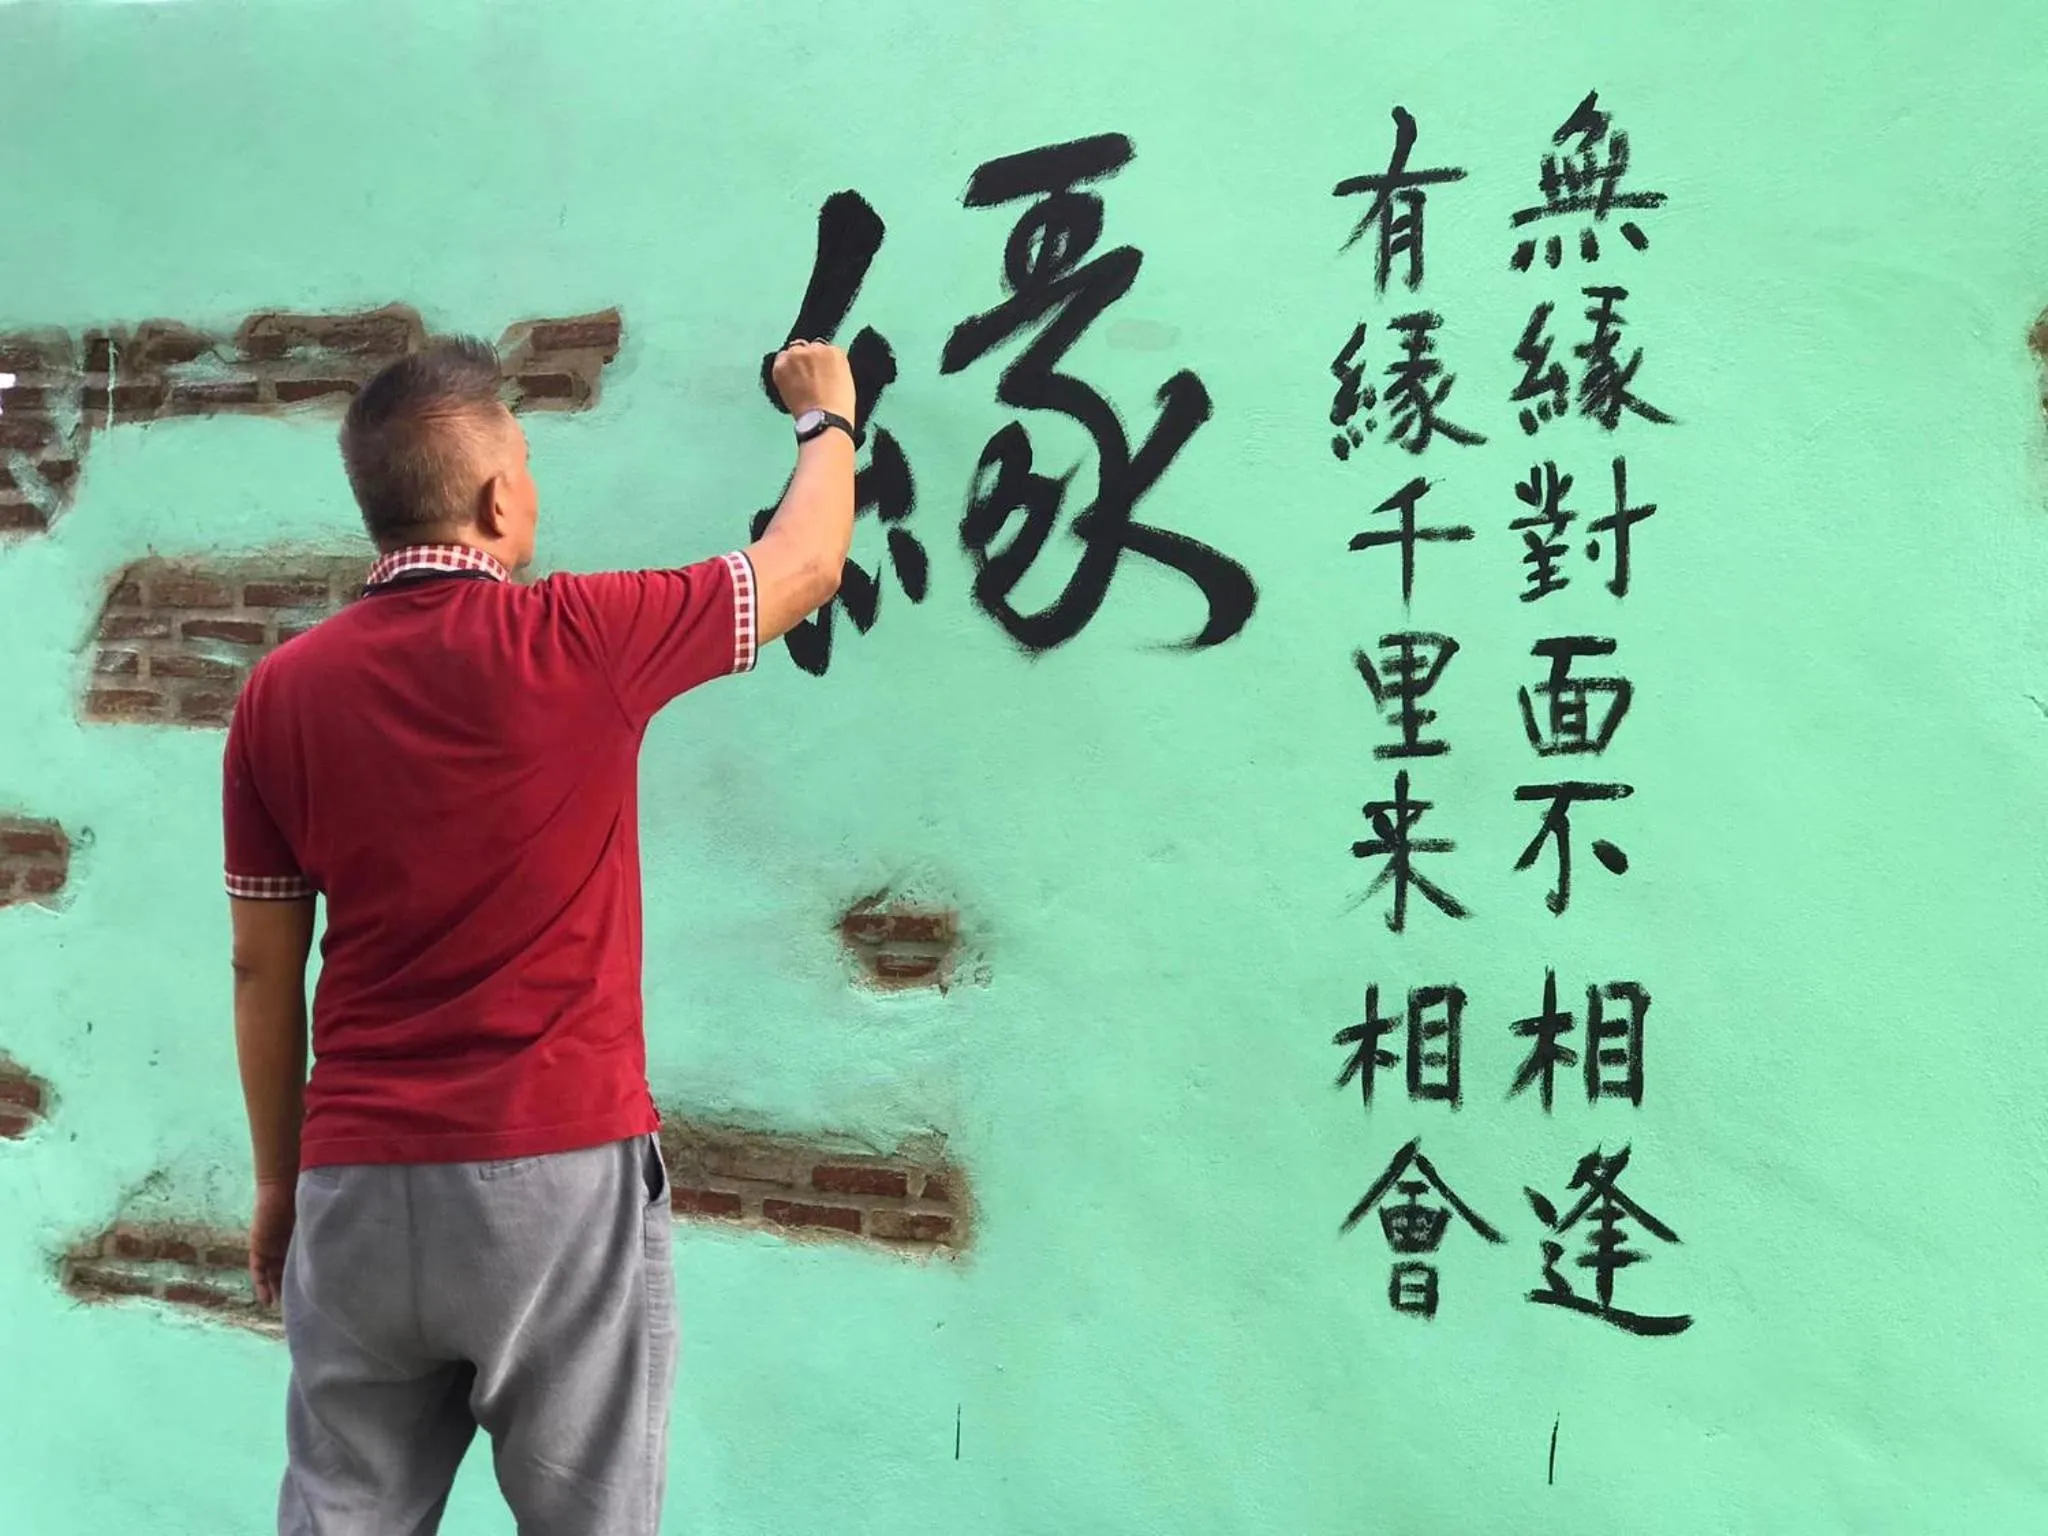 緣
有緣千里来相會
無緣對面不相逢